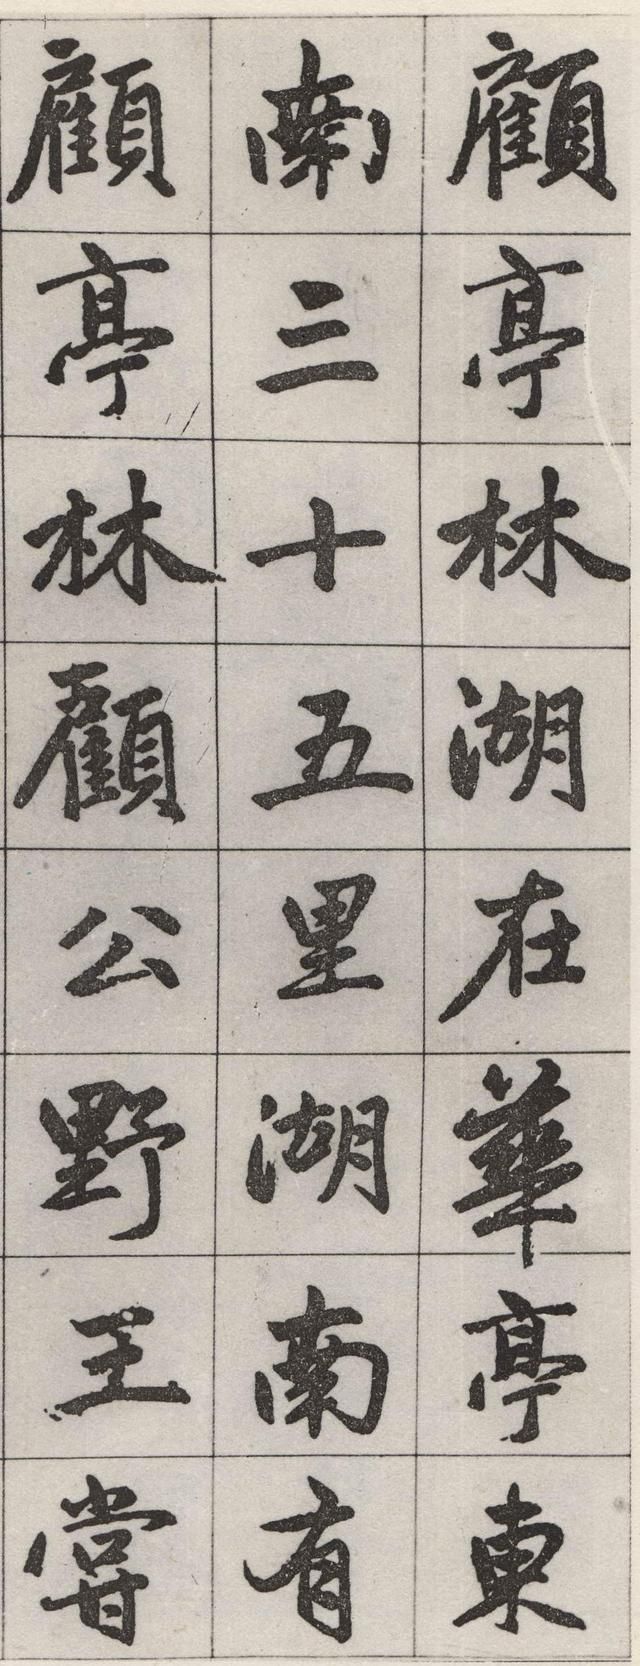 顧亭林湖在華亭東
南三十五里湖南有
顧亭林顧公野王嘗